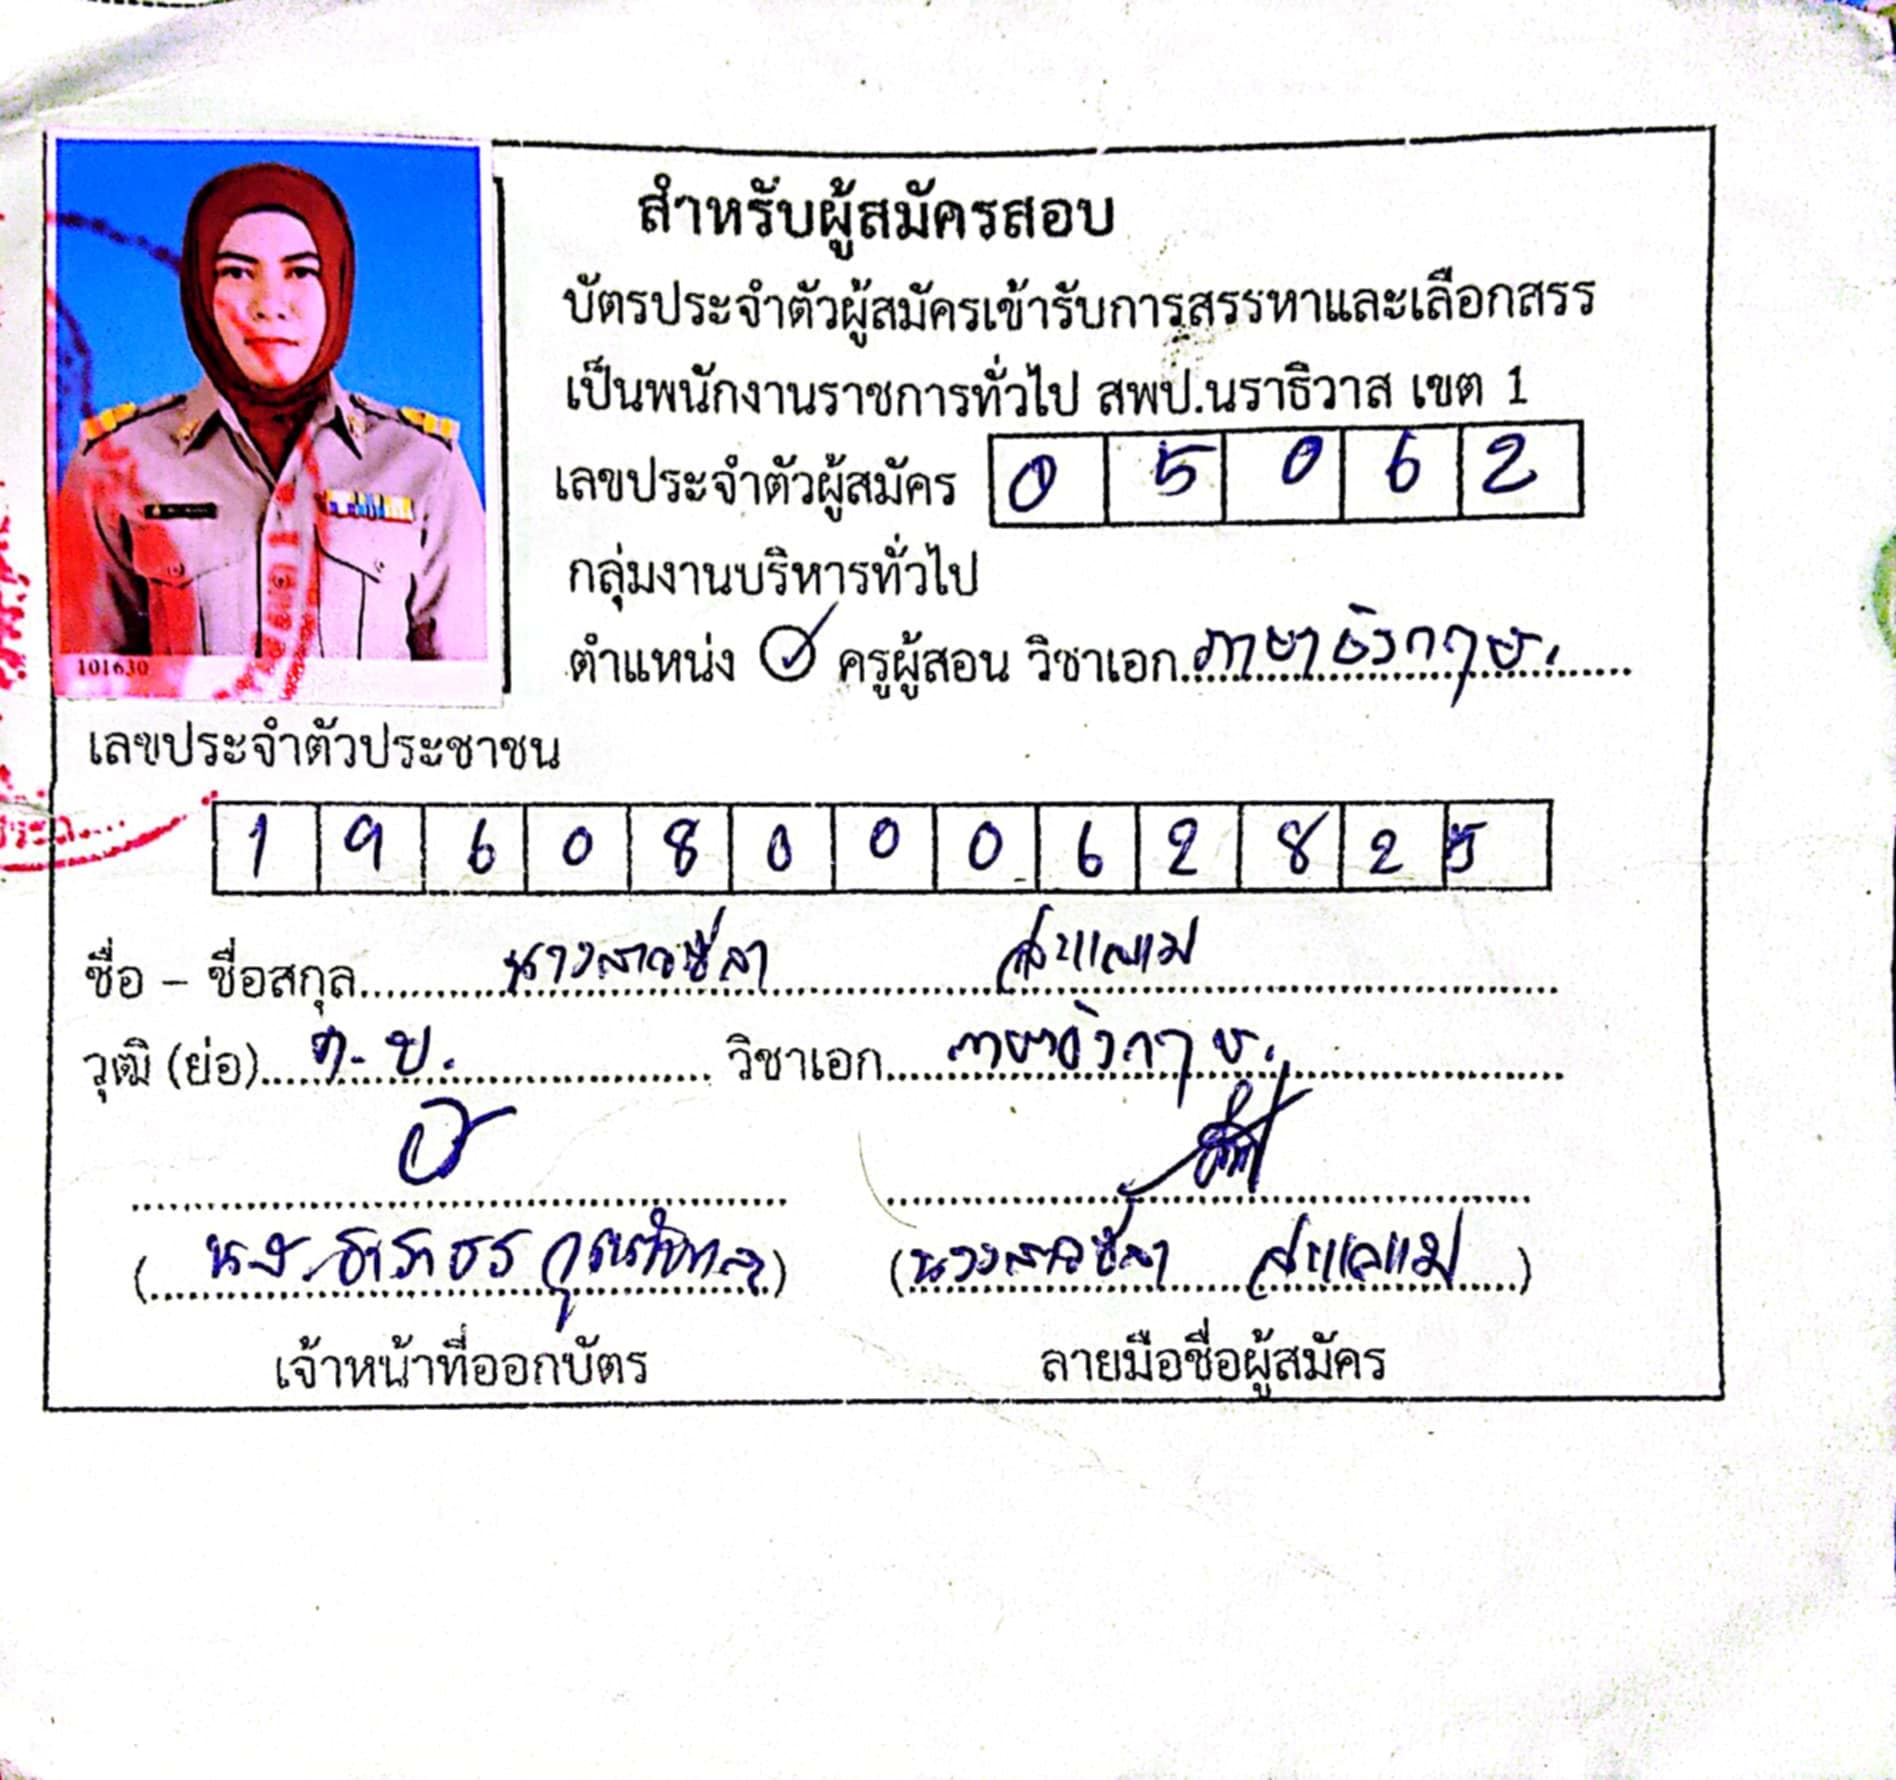 สำหรับผู้สมัครสอบ
บัตรประจำตัวผู้สมัครเข้ารับการสรรหาและเลือกสรร
เป็นพนักงานราชการทั่วไป สพป.นราธิวาส เขต 1
เลขประจำตัวผู้สมัคร 0 5 0 6 2
กลุ่มงานบริหารทั่วไป
ตำแหน่ง ครูผู้สอน วิชาเอก ภาษาอังกฤษ.
101630
เลขประจำตัวประชาชน
1 9 6 0 8 0 0 0 6 2 8 2 5
ชื่อ – ชื่อสกุล นางสาว สะแลแม
วุฒิ (ย่อ) ค.บ. วิชาเอก ภาษาอังกฤษ.
(นส. ) (นางสาว สะแลแม)
เจ้าหน้าที่ออกบัตร ลายมือชื่อผู้สมัคร